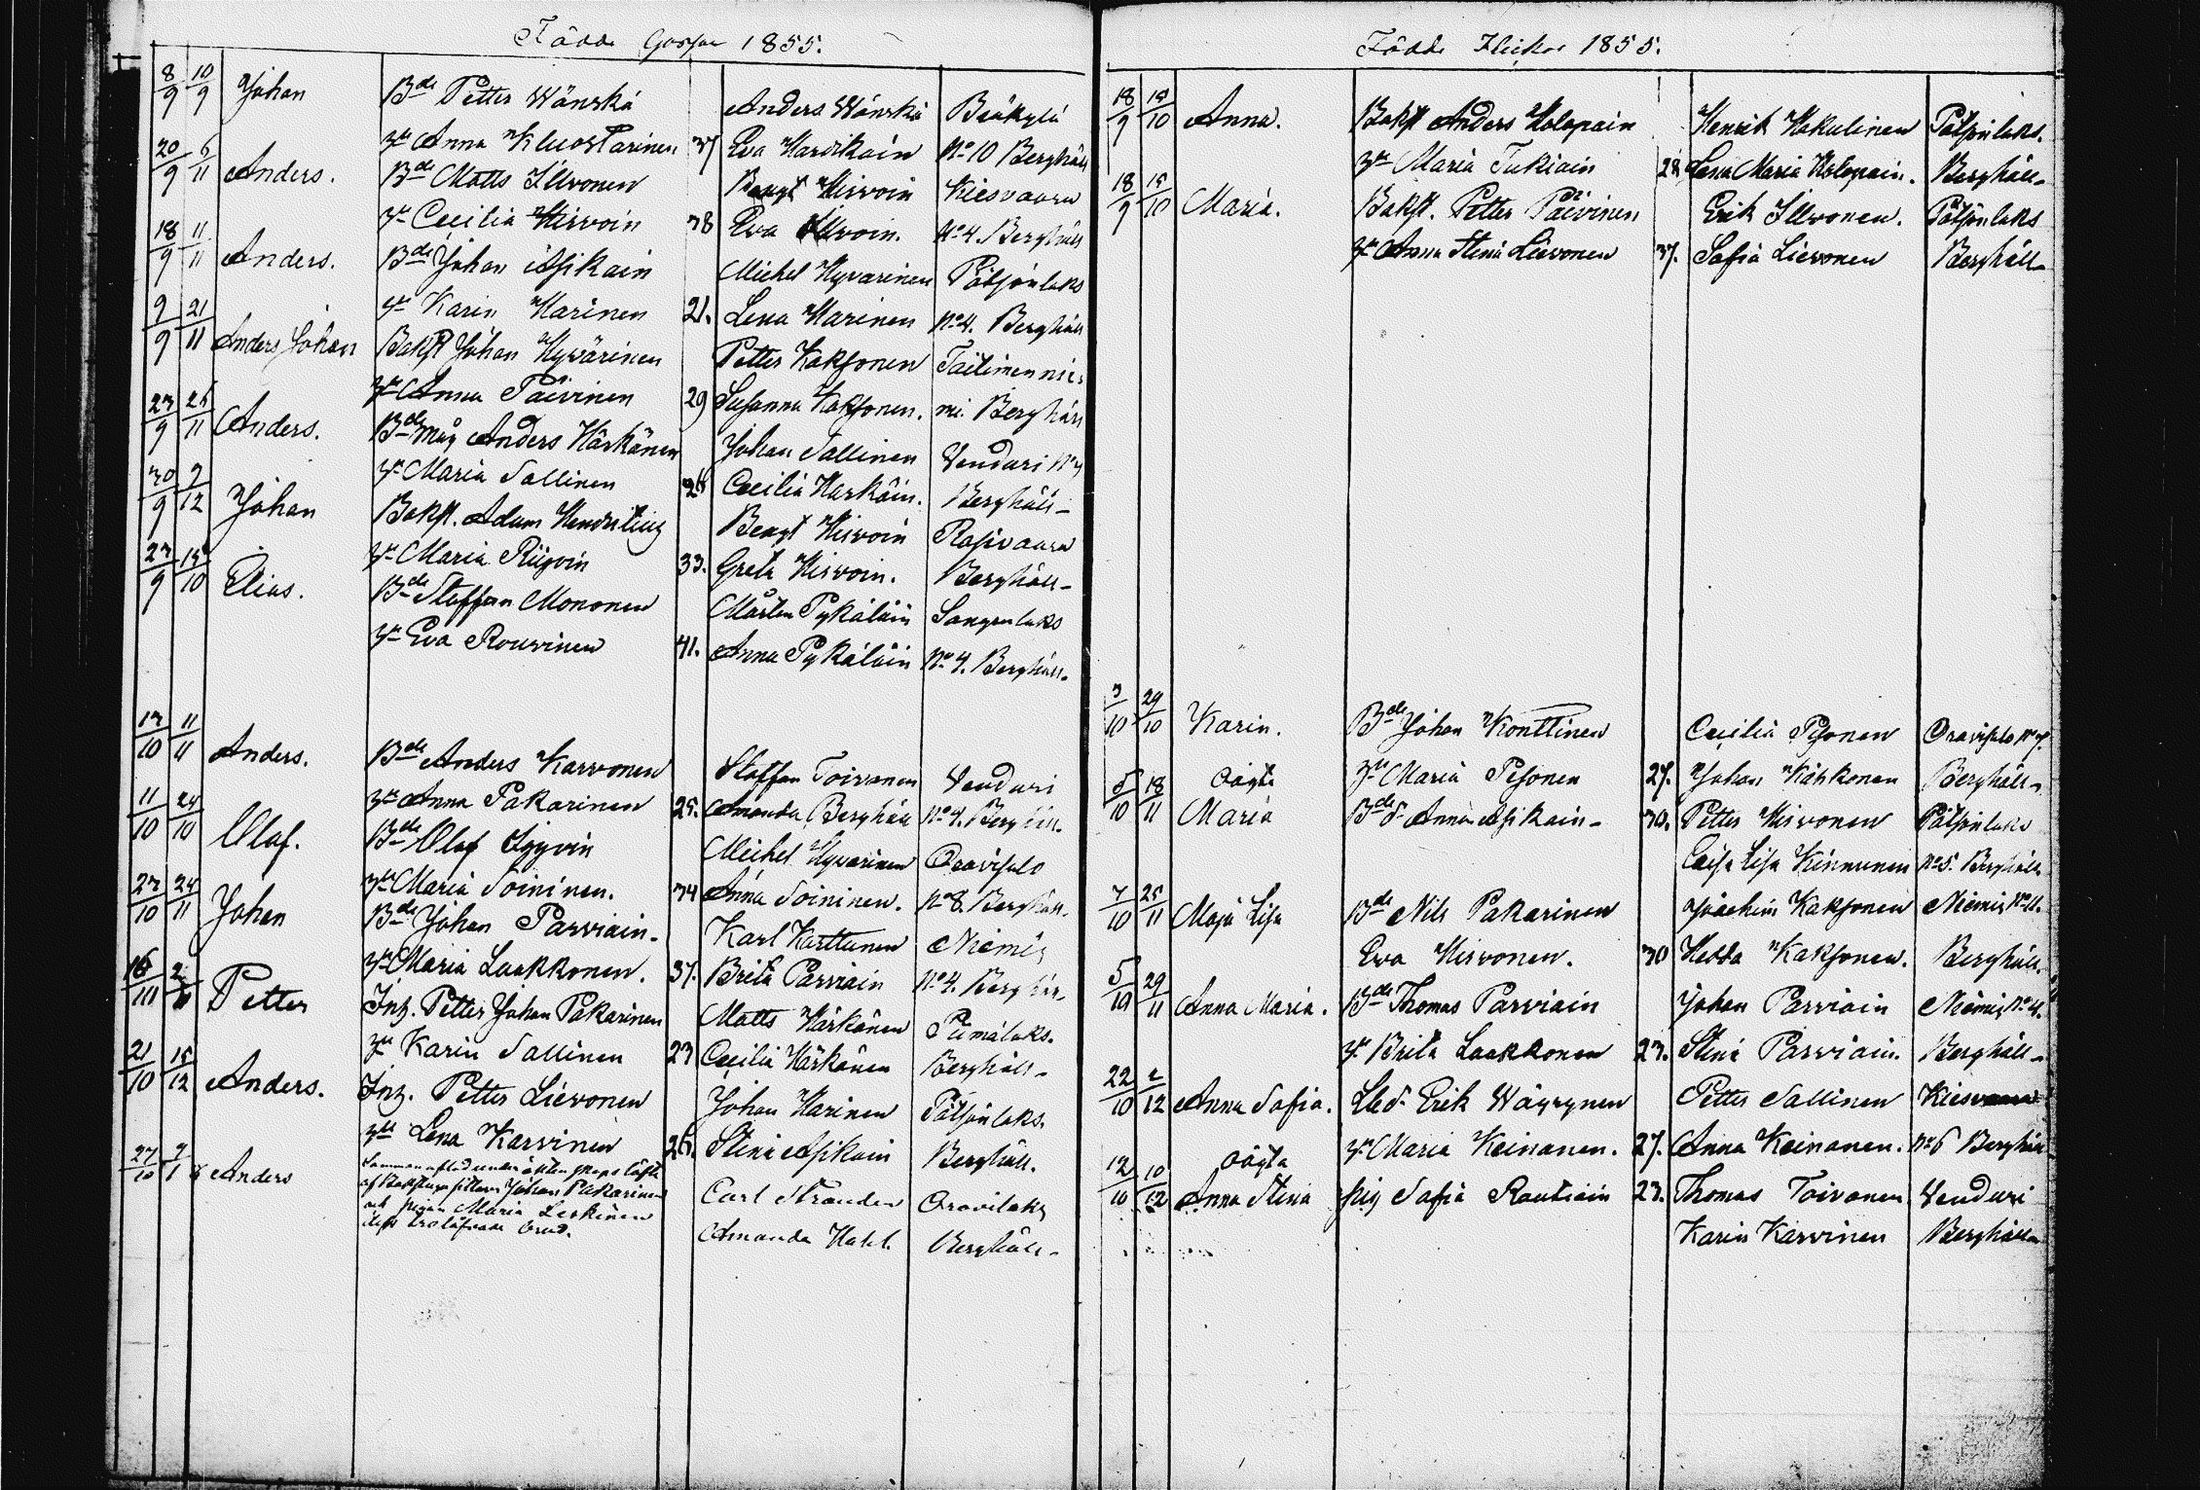 Födde Gossar 1855.
8/9 10/9 Johan Bde Petter Wänskä Anders Wänskä Bräkylä
Hu Anna Kluostarinen 37 Eva Harvikain No 10 Berghäll
20/9 6/11 Anders. Bde Matts Illvonen Bengt Hirvoin Kiesvaara
Hu Cecilia Hirvoin 38 Eva Hirvoin. No 4. Berghäll
18/9 11/11 Anders. Bde Johan Asikain Michel Hyvärinen Pötsönlaks
Hu Karin Harinen 21. Lena Harinen No 4. Berghäll
9/9 21/11 Anders Johan Bakst Johan Hyvärinen Petter Kaksonen Taitimennie
Hu Anna Päivinen 29 Susanna Kaksonen. mi. Berghäll
23/9 25/11 Anders. Bde måg Anders Härkänen Johan Sallinen Venduri No 4
Hu Maria Sallinen 26 Cecilia Harkäin. Berghäll
30/9 9/12 Johan Bakst. Adam Hendrilius Bengt Hirvoin Rasivaara
Hu Maria Riigvin 33. Greta Hirvoin. Berghäll
23/9 15/10 Elias. Bde Staffan Mononen Mårten Pykäläin Sangenlaks
Hu Eva Rouvinen 41. Anna Pykäläin No 4. Berghäll.
13/10 11/11 Anders. Bde Anders Karvonen Staffan Toivanen Venduri
Hu Anna Pakarinen 25. Amanda Berghäll No 4. Berghäll.
11/10 24/10 Olaf. Bde Olof Igyvin Michel Hyvarinen Oravisalo
Hu Maria Soininen. 34 Anna Soininen. No 8. Berghäll.
23/10 24/11 Johan Bde Johan Parviain. Karl Karttunen Niemis
Hu Maria Laakkonen. 37. Brita Parviain No 4. Berghäll.
Petter Inh. Petter Johan Pakarinen Matts Härkänen Piimälaks.
Hu Karin Sallinen 23 Cecilia Härkänen Berghäll
21/10 15/12 Anders. Inh. Petter Lievonen Johan Harinen Pötsönlaks.
Hu Lena Karvinen 26. Stina Asikain Berghäll.
27/10 Anders Sammanaflad under äktenskaps löfte
af Bakstugusittaren Johan Pakarinen Carl Strander Oravilaks
och pigan Maria Leskinen Amanda Hahl. Berghäll
dess trolofvade brud.
Födde Flickor 1855.
18/9 15/10 Anna. Bakst Anders Holopain Henrik Hakulinen Pötsönlaks.
Hu Maria Tukiain 28 Lena Maria Holopain. Berghäll
18/9 15/10 Maria. Bakst. Petter Päivinen Erik Illvonen. Pötsönlaks
Hu Anna Stina Lievonen 37. Sofia Lievonen Berghäll
3/10 29/10 Karin. Bde Johan Konttinen Cecilia Pesonen Oravisalo No 7.
Hu Maria Pesonen 27. Johan Kähkonen Berghäll
5/10 18/11 Oägta Maria Bde d. Anna Asikain 30. Petter Hirvonen Pötsönlaks
Caisa Lisa Kinnunen No 5. Berghäll
7/10 25/11 Maja Lisa Bde Nils Pakarinen Joachim Kaksonen Niemis No 11.
Eva Hirvonen. 30 Hedda Kaksonen. Berghäll.
5/10 29/11 Anna Maria. Bde Thomas Parviain Johan Parviain Niemis No 4.
Hu Brita Laakkonen 23. Stina Parviain. Berghäll
22/10 2/12 Anna Sofia. Lbd. Erik Wäyrynen Petter Sallinen Kiesvaara
Hu Maria Keinanen. 27. Anna Keinanen. No 6 Berghäll
12/10 10/12 Oägta Anna Stina pig Sofia Rautiain 23. Thomas Toivonen Venduri
Karin Karvinen Berghäll